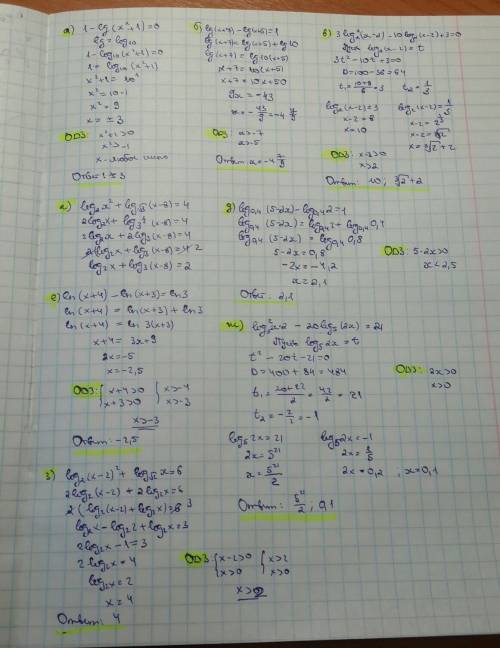 а) 1 - lg(x²+1)=0
lg = log₁₀
1 - log₁₀(x²+1)=0
1 = log₁₀(x²+1)
x²+1 = 10¹
x² = 10-1
x² = 9
x = ±3
ОДЗ: x²+1>0
x²>-1
x - любое число
Ответ: ±3
б) lg(x+7) - lg(x+5)=1
lg(x+7) = lg(x+5) + lg10
lg(x+7) = lg10(x+5)
x+7 = 10(x+5)
x+7 = 10x+50
9x = -43
x = -43/9 = -4 7/9
ОДЗ x>-7
x>-5
Ответ: x = -4 7/9
в) 3log₂²(x-2) - 10log₂(x-2)+3=0
Пусть log₂(x-2) = t
3t² - 10t + 3 = 0
D=100-36=64
t₁ = (10+8)/6 = 3 t₂ = 1/3
log₂(x-2) = 3 log₂(x-2) = 1/3
x-2 = 8 x-2 = 2^(1/3)
x = 10 x-2 = ∛2
x = ∛2 + 2
ОДЗ: x-2>0
x>2
Ответ: 10; ∛2+2
log₂x² + log√₃(x-8) = 4
2log₂x + log₃(x-8) = 4
2log₂x + 2log₃(x-8) = 4
log₂x + log₃(x-8) = 2
д) log₀,₄(5-2x) - log₀,₄2 = 1
log₀,₄(5-2x) = log₀,₄2 + log₀,₄0,4
log₀,₄(5-2x) = log₀,₄0,8
5-2x = 0,8
-2x = -4,2
x = 2,1
ОДЗ: 5-2x>0
x<2,5
Ответ: 2,1
е) ln(x+4) - ln(x+3) = ln3
ln(x+4) = ln(x+3) + ln3
ln(x+4) = ln3(x+3)
x+4 = 3x+9
2x = -5
x = -2,5
ОДЗ: { x+4>0 { x>-4
x+3>0 x>-3
x>-3
Ответ: -2,5
ж) log₅²x2 - 20log₅(2x) = 21
Пусть log₅2x = t
t² - 20t - 21 = 0
D = 400 + 84 = 484
t₁ = (20+22)/2 = 42/2 = 21
t₂ = -2/2 = -1
ОДЗ: 2x>0
x>0
log₅2x = 21 log₅2x = -1
2x = 5²¹ 2x = 1/5
x = 5²¹/2 2x = 0,2, x = 0,1
Ответ: 5²¹/2, 0,1
з) log₂(x-2)² + log√₂x = 6
2log₂(x-2) + 2log₂x = 6
2(log₂(x-2) + log₂x) = 6 3
log₂x - log₂2 + log₂x = 3
2log₂x - 1 = 3
2log₂x = 4
log₂x = 2
x = 4
ОДЗ { x-2>0 { x>2
x>0 x>0
x>2
Ответ: 4